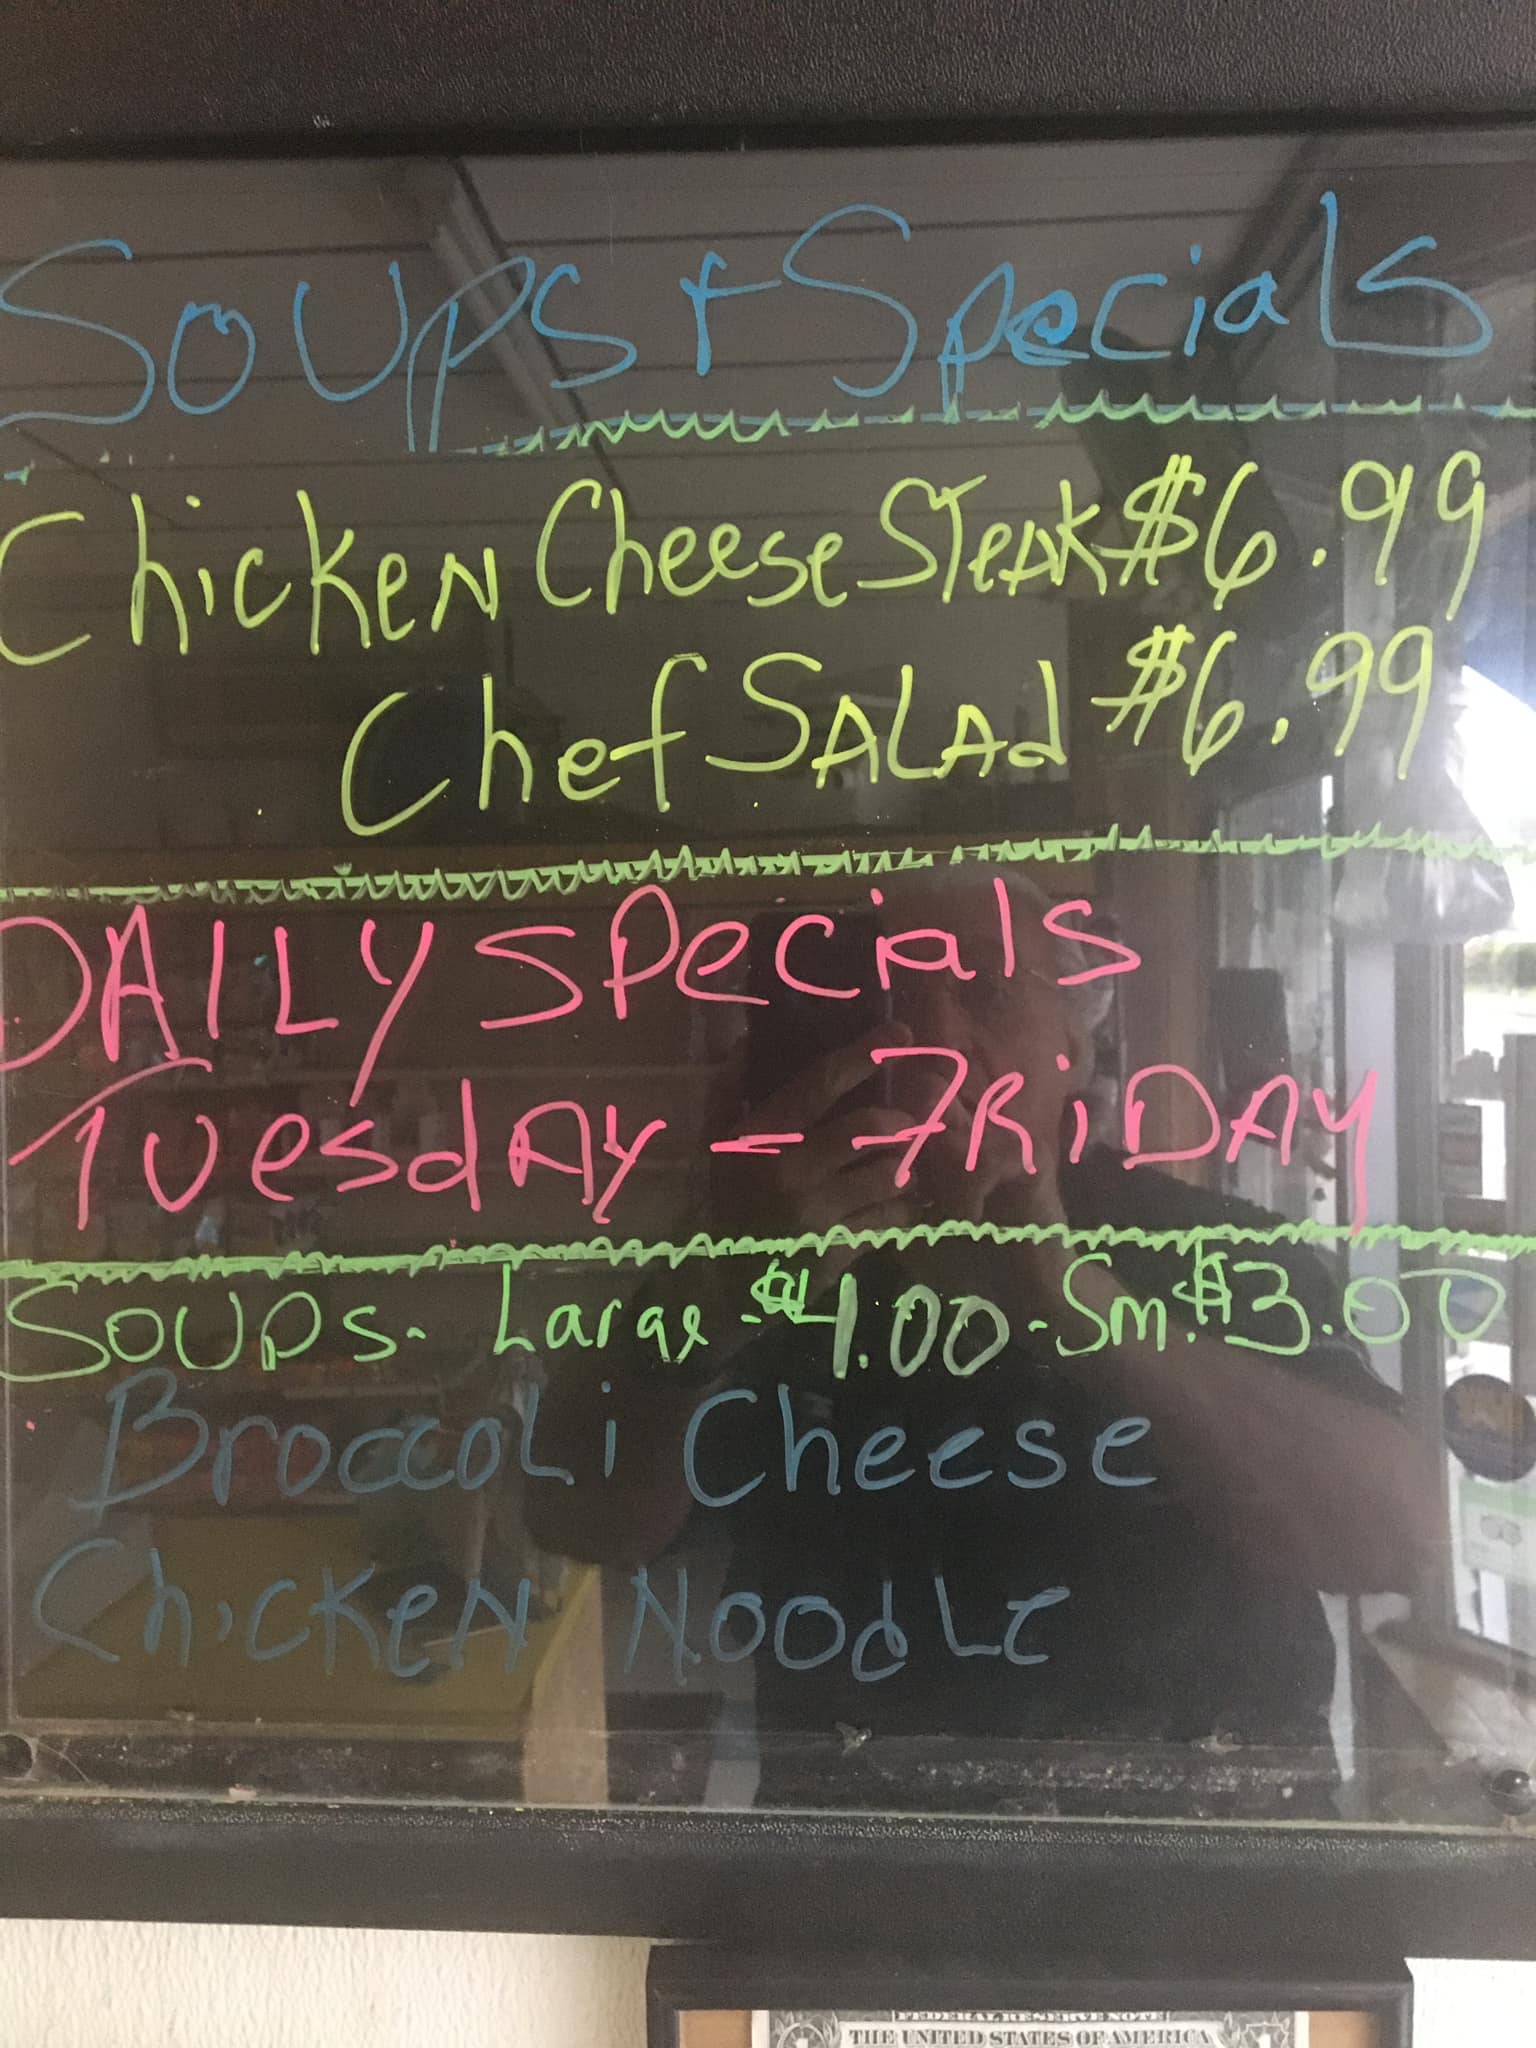 Soups + Specials
Chicken Cheese Steak $6.99
Chef Salad $6.99
DAILY Specials
Tuesday - FRiDAY
Soups - Large - $4.00 - Sm. $3.00
Broccoli Cheese
Chicken Noodle
FEDERAL RESERVE NOTE
THE UNITED STATES OF AMERICA